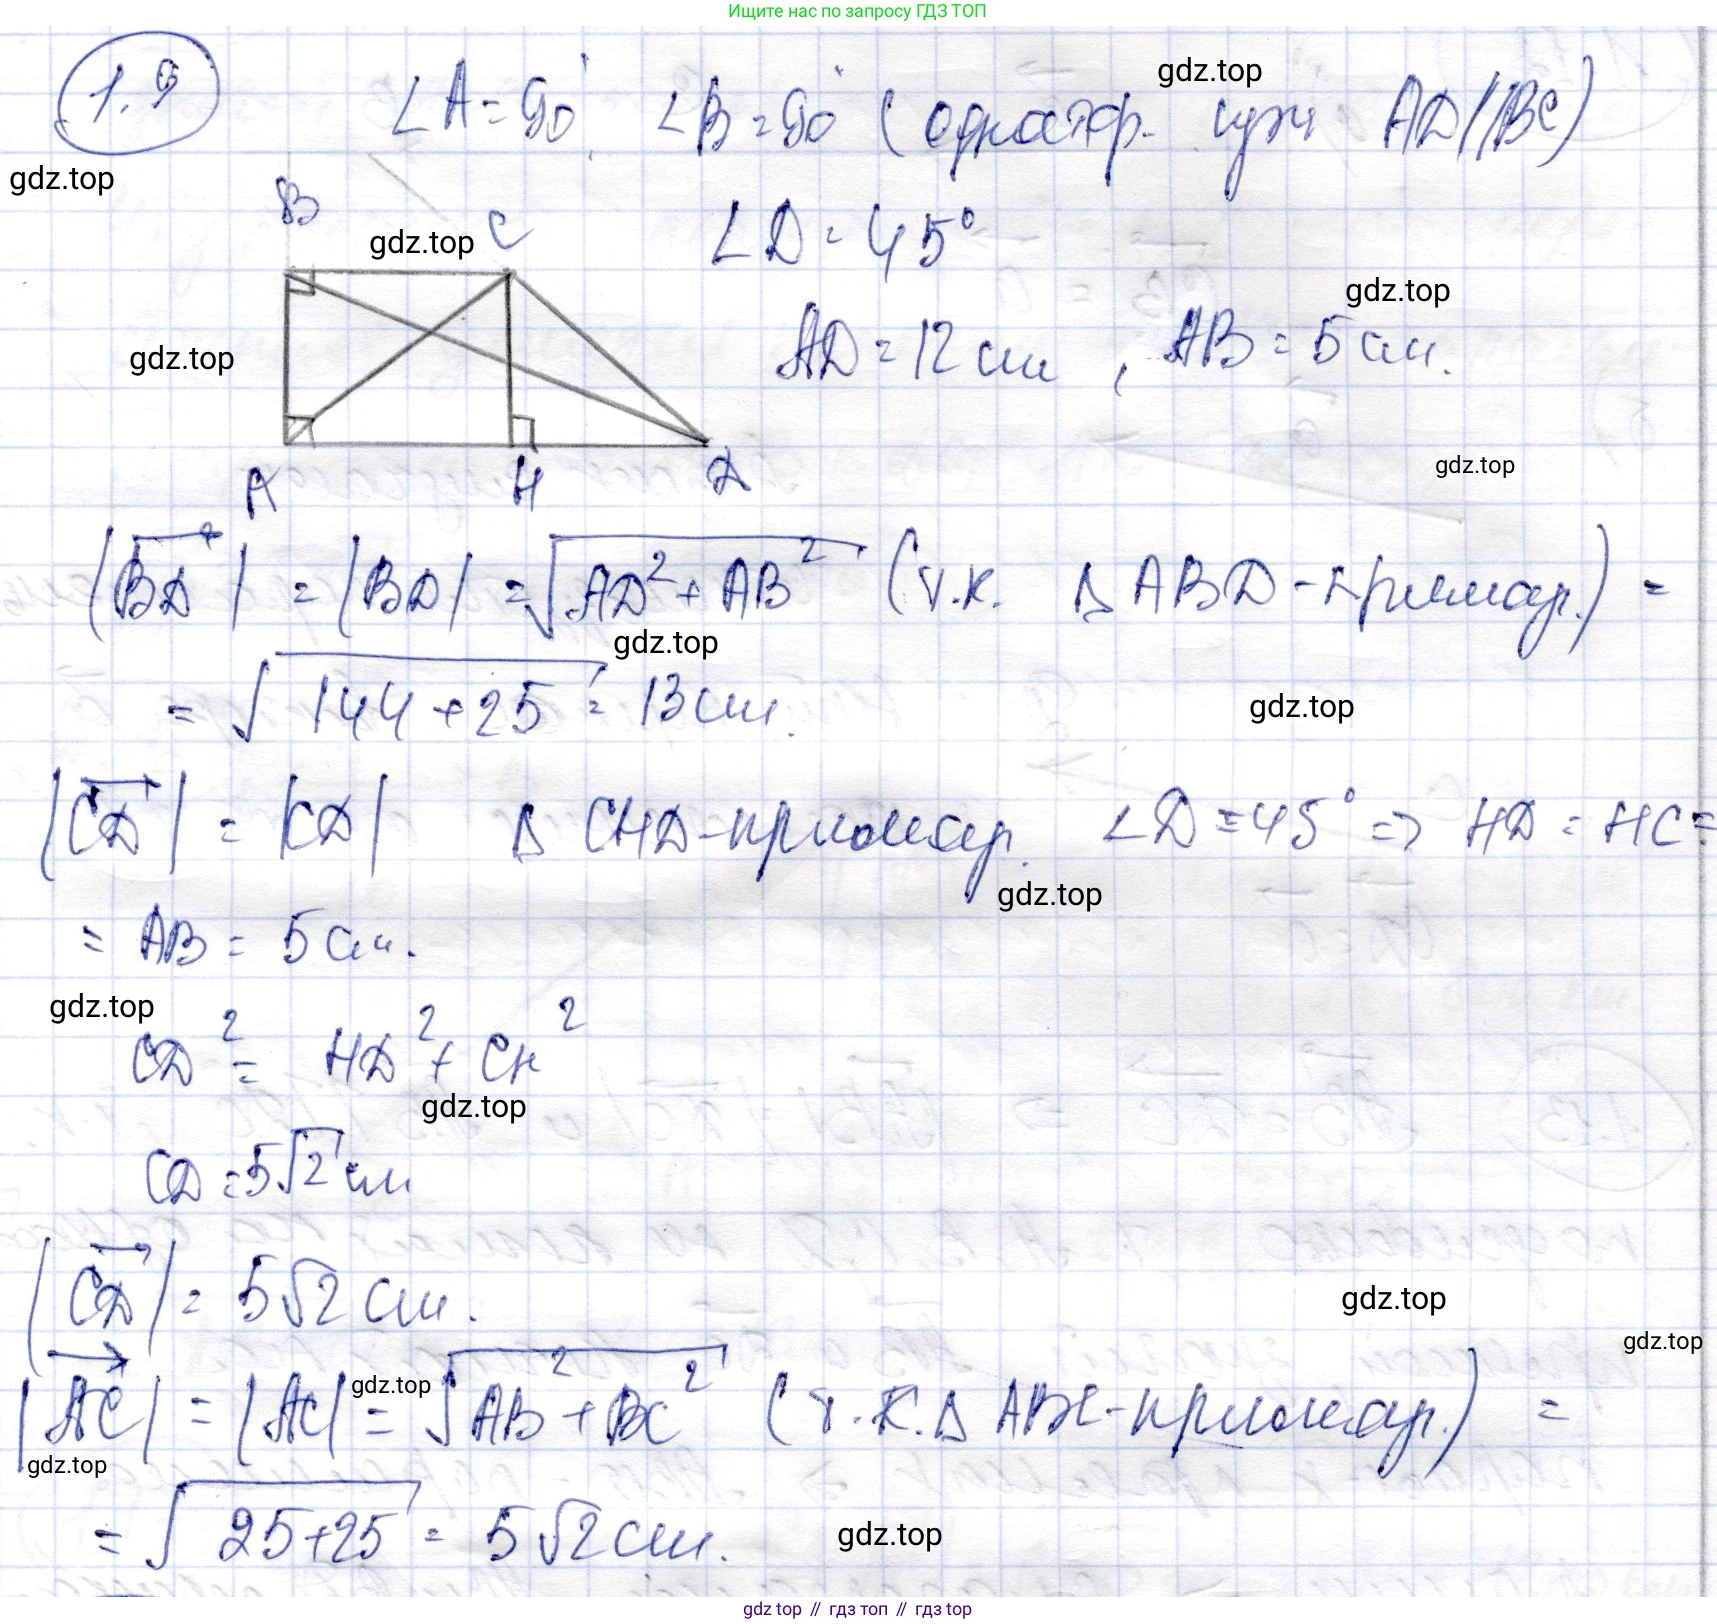 Ищите нас по запросу ГДЗ ТОП
1.9
∠A = 90°, ∠B = 90° ( одностор. при AD//BC)
gdz.top
gdz.top
B
gdz.top
C
∠D = 45°
gdz.top
gdz.top
AD = 12 см, AB = 5 см.
gdz.top
A
H
D
|BD| = |BD| = √AD² + AB² (т.к. Δ ABD - прямоуг.) =
gdz.top
= √144 + 25 = 13 см.
gdz.top
|CD| = |CD| Δ CHD - прямоуг. ∠D = 45° => HD = HC =
gdz.top
= AB = 5 см.
gdz.top
CD² = HD² + CH²
gdz.top
CD = 5√2 см
|CD| = 5√2 см.
gdz.top
gdz.top
|AC| = |AC| = √AB² + BC² (т.к. Δ ABC - прямоуг.) =
gdz.top
gdz.top
= √25+25 = 5√2 см.
gdz.top
gdz top // гдз топ // гдз top